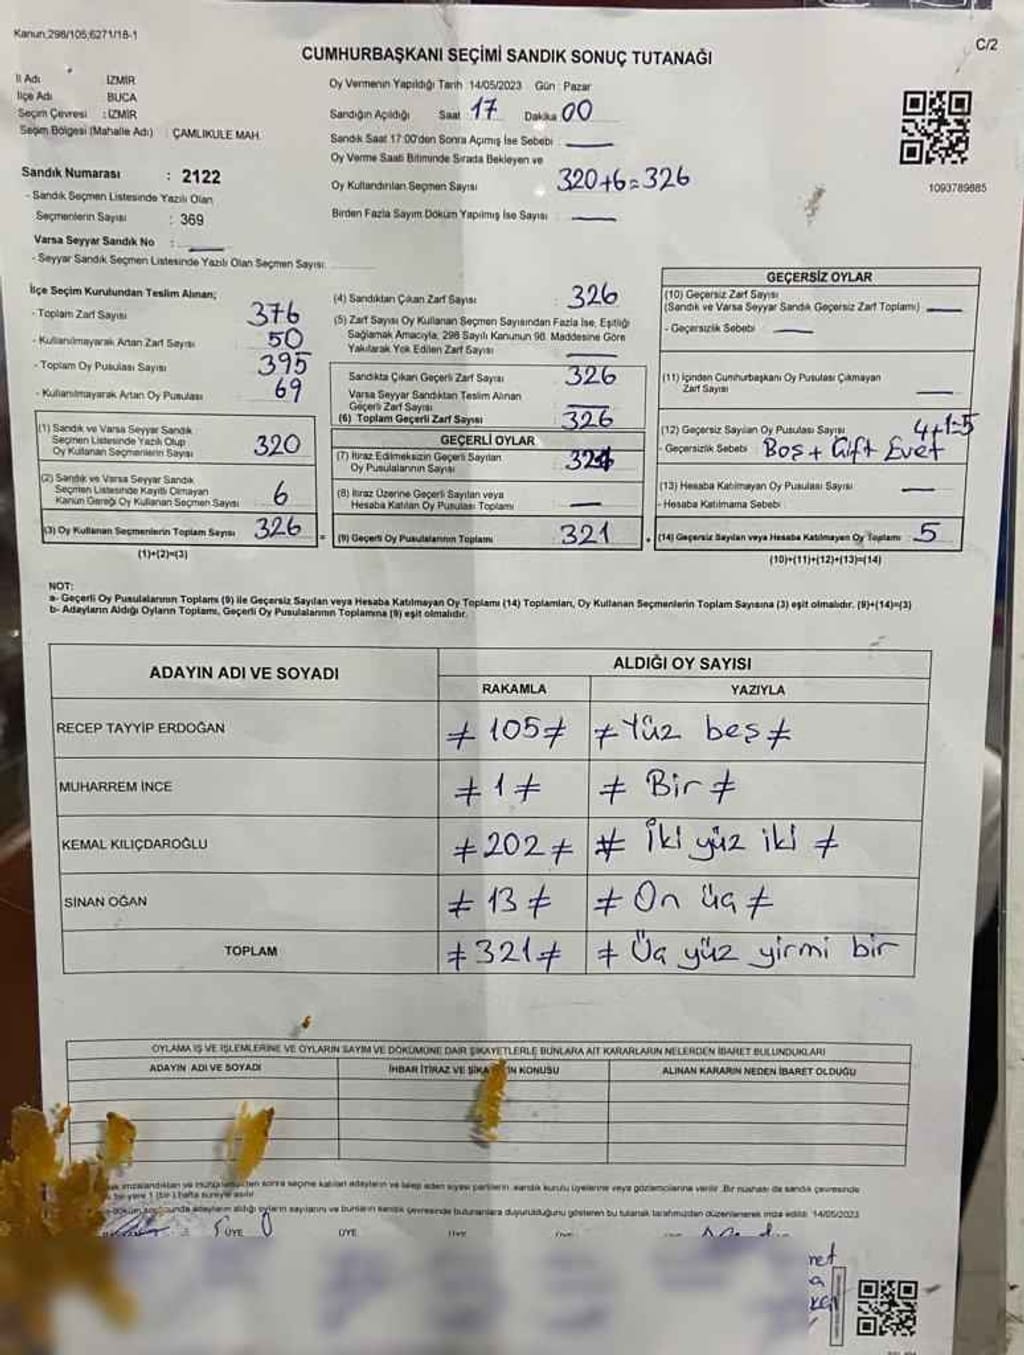 Kanun,298/105;6271/18-1
C/2
CUMHURBAŞKANI SEÇİMİ SANDIK SONUÇ TUTANAĞI
İl Adı İZMİR
İlçe Adı BUCA
Seçim Çevresi : İZMİR
Seçim Bölgesi (Mahalle Adı) ÇAMLIKULE MAH.
Sandık Numarası : 2122
- Sandık Seçmen Listesinde Yazılı Olan
Seçmenlerin Sayısı : 369
Varsa Seyyar Sandık No :
- Seyyar Sandık Seçmen Listesinde Yazılı Olan Seçmen Sayısı:
Oy Vermenin Yapıldığı Tarih 14/05/2023 Gün Pazar
Sandığın Açıldığı Saat 17 Dakika 00
Sandık Saat 17:00'den Sonra Açımış İse Sebebi
Oy Verme Saati Bitiminde Sırada Bekleyen ve
Oy Kullandırılan Seçmen Sayısı 320+6=326
Birden Fazla Sayım Döküm Yapılmış İse Sayısı
1093789885
İlçe Seçim Kurulundan Teslim Alınan;
- Toplam Zarf Sayısı 376
- Kullanılmayarak Artan Zarf Sayısı 50
- Toplam Oy Pusulası Sayısı 395
- Kullanılmayarak Artan Oy Pusulası 69
(1) Sandık ve Varsa Seyyar Sandık
Seçmen Listesinde Yazılı Olup
Oy Kullanan Seçmenlerin Sayısı 320
(2) Sandık ve Varsa Seyyar Sandık
Seçmen Listesinde Kayıtlı Olmayan
Kanun Gereği Oy Kullanan Seçmen Sayısı 6
(3) Oy Kullanan Seçmenlerin Toplam Sayısı 326 =
(1)+(2)=(3)
(4) Sandıktan Çıkan Zarf Sayısı : 326
(5) Zarf Sayısı Oy Kullanan Seçmen Sayısından Fazla İse, Eşitliği
Sağlamak Amacıyla, 298 Sayılı Kanunun 98. Maddesine Göre
Yakılarak Yok Edilen Zarf Sayısı
Sandıkta Çıkan Geçerli Zarf Sayısı 326
Varsa Seyyar Sandıktan Teslim Alınan
Geçerli Zarf Sayısı
(6) Toplam Geçerli Zarf Sayısı 326
GEÇERLİ OYLAR
(7) İtiraz Edilmeksizin Geçerli Sayılan
Oy Pusulalarının Sayısı 321
(8) İtiraz Üzerine Geçerli Sayılan veya
Hesaba Katılan Oy Pusulası Toplamı
(9) Geçerli Oy Pusulalarının Toplamı 321 +
GEÇERSİZ OYLAR
(10) Geçersiz Zarf Sayısı
(Sandık ve Varsa Seyyar Sandık Geçersiz Zarf Toplamı)
- Geçersizlik Sebebi
(11) İçinden Cumhurbaşkanı Oy Pusulası Çıkmayan
Zarf Sayısı
(12) Geçersiz Sayılan Oy Pusulası Sayısı 4+1=5
- Geçersizlik Sebebi Boş + Çift Evet
(13) Hesaba Katılmayan Oy Pusulası Sayısı
- Hesaba Katılmama Sebebi
(14) Geçersiz Sayılan veya Hesaba Katılmayan Oy Toplamı 5
(10)+(11)+(12)+(13)=(14)
NOT:
a- Geçerli Oy Pusulalarının Toplamı (9) ile Geçersiz Sayılan veya Hesaba Katılmayan Oy Toplamı (14) Toplamları, Oy Kullanan Seçmenlerin Toplam Sayısına (3) eşit olmalıdır. (9)+(14)=(3)
b- Adayların Aldığı Oyların Toplamı, Geçerli Oy Pusulalarının Toplamına (9) eşit olmalıdır.
ADAYIN ADI VE SOYADI ALDIĞI OY SAYISI
RAKAMLA YAZIYLA
RECEP TAYYİP ERDOĞAN ≠ 105 ≠ ≠ Yüz beş ≠
MUHARREM İNCE ≠ 1 ≠ ≠ Bir ≠
KEMAL KILIÇDAROĞLU ≠ 202 ≠ ≠ İki yüz iki ≠
SİNAN OĞAN ≠ 13 ≠ ≠ On üç ≠
TOPLAM ≠ 321 ≠ ≠ Üç yüz yirmi bir
OYLAMA İŞ VE İŞLEMLERİNE VE OYLARIN SAYIM VE DÖKÜMÜNE DAİR ŞİKAYETLERLE BUNLARA AİT KARARLARIN NELERDEN İBARET BULUNDUKLARI
ADAYIN ADI VE SOYADI İHBAR İTİRAZ VE KONUSU ALINAN KARARIN NEDEN İBARET OLDUĞU
imzalandıktan ve sonra seçime katılan adayların ve talep eden siyasi partilerin sandık kurulu üyelerine veya gözlemcilerine verilir. Bir nüshası da sandık çevresinde
bir yere 1 (bir) hafta süreyle asılır.
adayların aldığı oyların sayılarını ve bunların sandık çevresinde bulunanlara duyurulduğunu gösteren bu tutanak tarafımızdan düzenlenerek imza edildi. 14/05/2023
ÜYE ÜYE